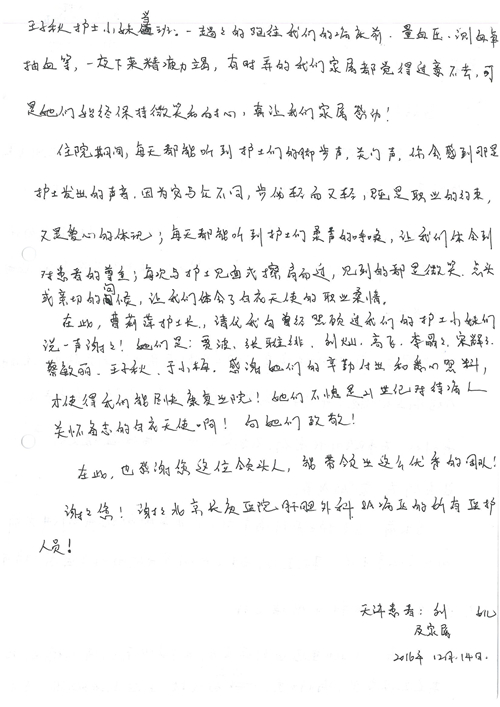 王子秋护士小妹当班. 一趟趟的跑往我们的病床前. 量血压. 测血氧
抽血等, 一夜下来精疲力竭, 有时弄的我们家属都觉得过意不去, 可
是她们始终保持微笑和白心, 真让我们家属感动!
住院期间, 每天都能听到护士们的脚步声, 关门声, 你会感到那是
护士发出的声音. 因为它与众不同, 步伐轻而又轻, 既是职业的约束,
又是爱心的体现; 每天都能听到护士们柔声的呼唤, 让我们体会到
对患者的尊重; 每次与护士见面或擦肩而过, 见到的都是微笑. 点头
或亲切的问候, 让我们体会了白衣天使的职业柔情.
在此, 曹莉萍护士长, 请代我向曾经照顾过我们的护士小妹们
说一声谢谢! 她们是: 贾波、张桂维、刘灿、高飞、李晶晶、宋辉、
蔡敏丽、王子秋、于小梅. 感谢她们的辛勤付出和悉心照料,
才使得我们能尽快康复出院! 她们不愧是21世纪对待病人
关怀备至的白衣天使啊! 向她们致敬!
在此, 也感谢您这位领头人, 能带领出这么优秀的团队!
谢谢您! 谢谢北京长庚医院肝胆外科 病区的所有医护
人员!
天津患者: 刘
及家属
2016年12月.14日.